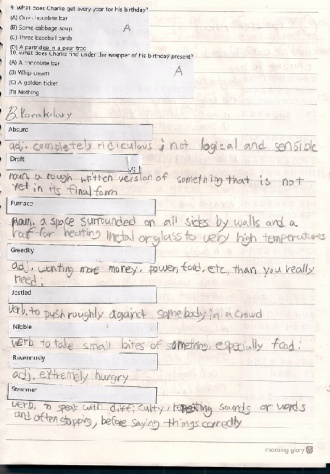 9. What does Charlie get every year for his birthday?
(A) One chocolate bar
(B) Some cabbage soup
A
(C) Three baseball cards
(D) A partridge in a pear tree
10. What does Charlie find under the wrapper of his birthday present?
(A) A chocolate bar
(B) Whip cream
A
(C) A golden ticket
(D) Nothing
B. Vocabulary
Absurd
adj. completely ridiculous ; not logical and sensible
Draft
noun, a rough written version of something that is not
yet in its final form
Furnace
noun, a space surrounded on all sides by walls and a
roof for heating metal or glass to very high temperatures
Greedily
adj, wanting more money, power, food, etc. than you really
need.
Jostled
verb, to push roughly against somebody in a crowd
Nibble
verb to take small bites of something, especially food:
Ravenously
adj. extremely hungry
Stammer
verb, to speak with difficulty, repeating sounds or words
and often stopping, before saying things correctly
morning glory